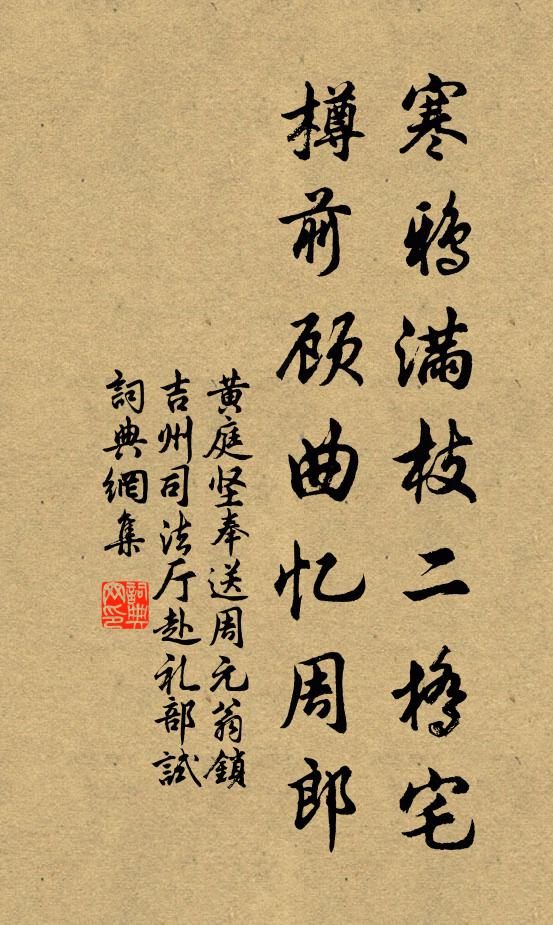 寒鸦满枝二桥宅
樽前顾曲忆周郎
黄庭坚奉送周元翁鎖
吉州司法厅赴礼部試
詞典網集
詞典网印